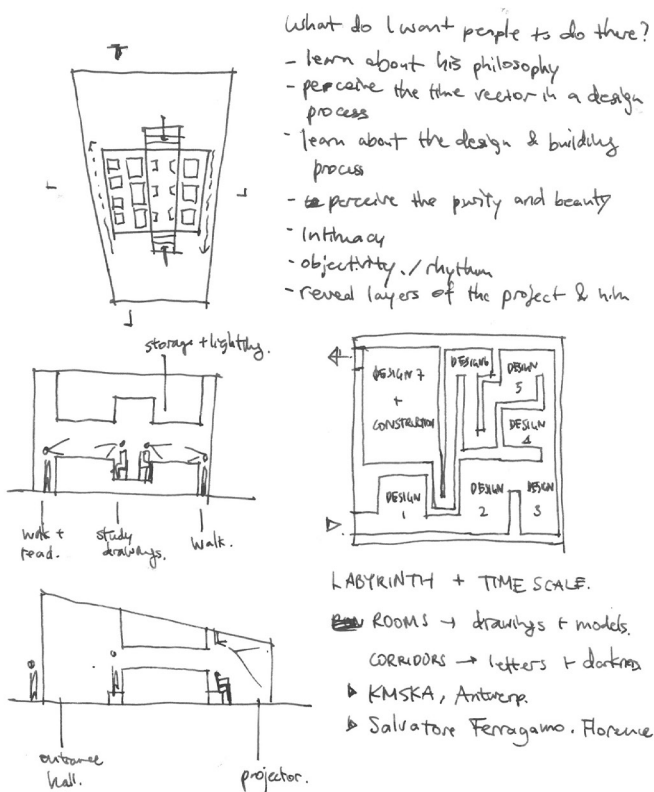 What do I want people to do there?
- learn about his philosophy
- perceive the time vector in a design
process
- learn about the design & building
process
- perceive the purity and beauty
- intimacy
- objectivity / rhythm
- reveal layers of the project & him
storage + lighting.
walk +
read.
study
drawings.
walk.
entrance
hall.
projector.
DESIGN 7
+
CONSTRUCTION
DESIGN 6
DESIGN
5
DESIGN
4
DESIGN
1
DESIGN
2
DESIGN
3
LABYRINTH + TIME SCALE.
ROOMS → drawings + models.
CORRIDORS → letters + darkness
KMSKA, Antwerp.
Salvatore Ferragamo. Florence